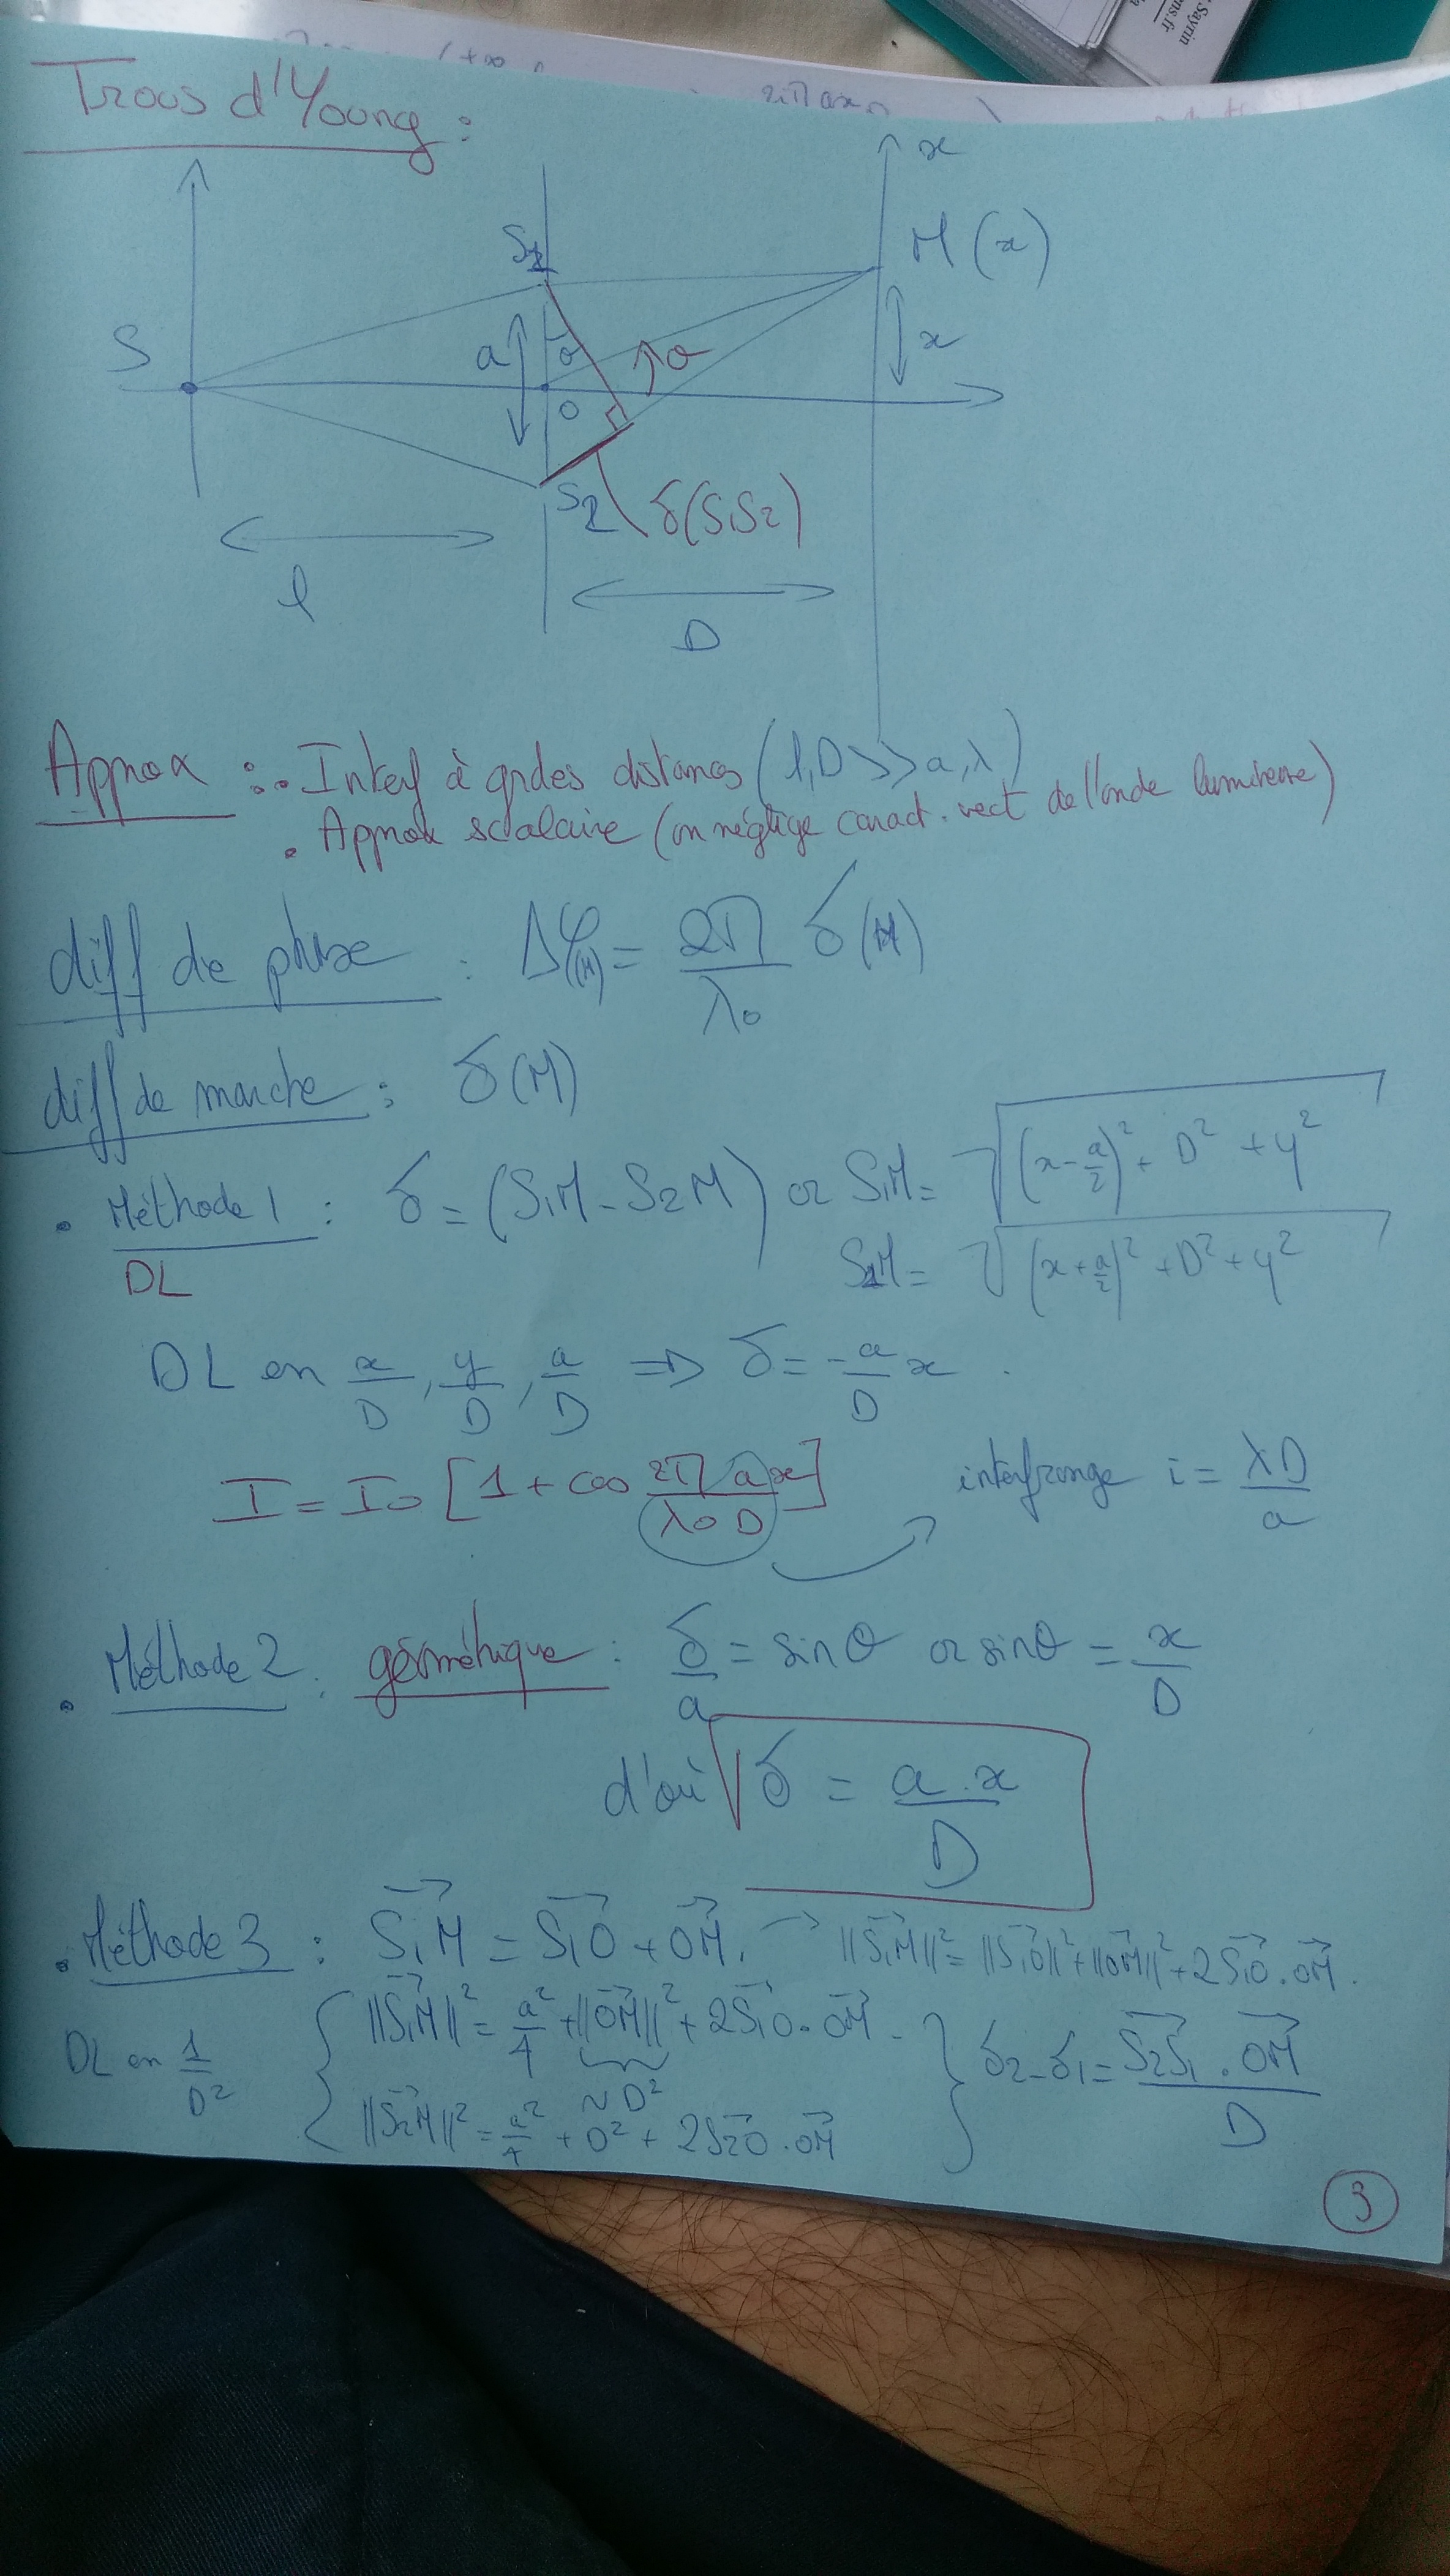 Sayrin
ns.fr
Trous d'Young :
x
S1
M (x)
S
a
θ
θ
x
O
S2
δ(S1S2)
l
D
Approx : . Interf à grdes distances (l, D >> a, λ)
. Approx scalaire (on néglige caract. vect de l'onde lumineuse)
diff de phase : Δφ(M) = 2π/λ0 δ(M)
diff de marche : δ(M)
. Méthode 1 : δ = (S1M - S2M) or S1M = √((x - a/2)² + D² + y²)
DL
S2M = √((x + a/2)² + D² + y²)
DL en x/D, y/D, a/D => δ = -a/D x .
I = I0 [1 + cos 2π a x / λ0 D]
interfrange i = λD/a
. Méthode 2 : géométrique : δ/a = sin θ or sin θ = x/D
d'où δ = a.x/D
. Méthode 3 : S1M = S1O + OM. → ||S1M||² = ||S1O||² + ||OM||² + 2S1O . OM .
DL en 1/D²
||S1M||² = a²/4 + ||OM||² + 2S1O . OM
~ D²
||S2M||² = a²/4 + D² + 2S2O . OM
δ2 - δ1 = S2S1 . OM / D
3